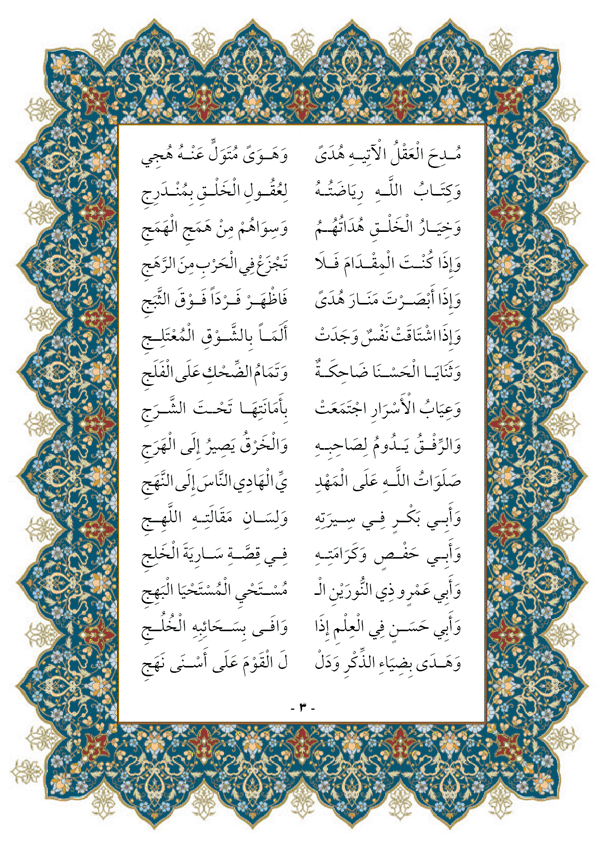 مُـدِحَ الْعَقْلُ الْآتِيـهِ هُدَىً وَهَـوَىً مُتَوَلٍّ عَنْـهُ هُجِي
وَكِتَـابُ اللَّـهِ رِيَاضَتُـهُ لِعُقُـولِ الْخَلْـقِ بِمُنْـدَرِجِ
وَخِيَـارُ الْخَلْـقِ هُدَاتُهُـمُ وَسِوَاهُمْ مِنْ هَمَجِ الْهَمَجِ
وَإِذَا كُنْـتَ الْمِقْـدَامَ فَـلَا تَجْزَعْ فِي الْحَرْبِ مِنَ الرَّهَجِ
وَإِذَا أَبْصَـرْتَ مَنَـارَ هُدَىً فَاظْهَـرْ فَـرْدَاً فَـوْقَ الثَّبَجِ
وَإِذَا اشْتَاقَتْ نَفْسٌ وَجَدَتْ أَلَمَـاً بِالشَّـوْقِ الْمُعْتَلِـجِ
وَثَنَايَـا الْحَسْـنَا ضَاحِكَـةٌ وَتَمَامُ الضِّحْكِ عَلَى الْفَلَجِ
وَعِيَابُ الْأَسْرَارِ اجْتَمَعَتْ بِأَمَانَتِهَـا تَحْـتَ الشَّـرَجِ
وَالرِّفْـقُ يَـدُومُ لِصَاحِبِـهِ وَالْخَرْقُ يَصِيرُ إِلَى الْهَرَجِ
صَلَوَاتُ اللَّـهِ عَلَى الْمَهْدِ يِّ الْهَادِي النَّاسَ إِلَى النَّهَجِ
وَأَبِـي بَكْـرٍ فِـي سِـيرَتِهِ وَلِسَـانِ مَقَالَتِـهِ اللَّهِـجِ
وَأَبِـي حَفْـصٍ وَكَرَامَتِـهِ فِـي قِصَّـةِ سَـارِيَةَ الْخَلِجِ
وَأَبِي عَمْرٍو ذِي النُّورَيْنِ الْـ مُسْـتَحْيِ الْمُسْتَحْيَا الْبَهِجِ
وَأَبِي حَسَـنٍ فِي الْعِلْمِ إِذَا وَافَـى بِسَـحَائِبِهِ الْخُلُـجِ
وَهَـدَى بِضِيَاءِ الذِّكْرِ وَدَلْ لَ الْقَوْمَ عَلَى أَسْـنَى نَهَجِ
- ٣ -